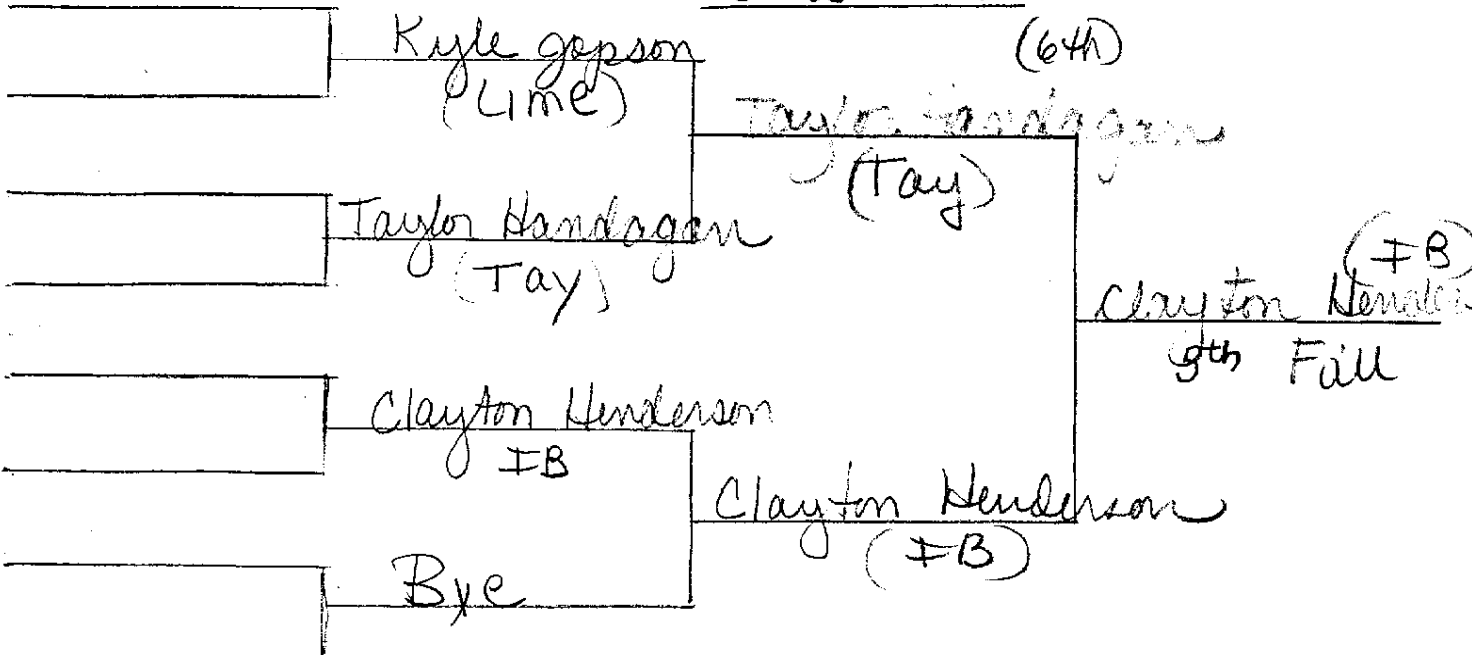 Kyle Jopson
(Lime)
(6th)
Taylor Handagan
(Tay)
Taylor Handagan
(Tay)
(IB)
Clayton
5th Fall
Clayton Henderson
IB
Clayton Henderson
(IB)
Bye